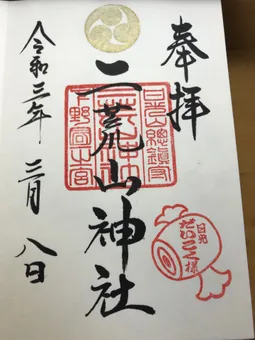 奉拝
日光山總鎮守
二荒山神社
下野國一之宮
日光
だいこく様
令和三年三月八日